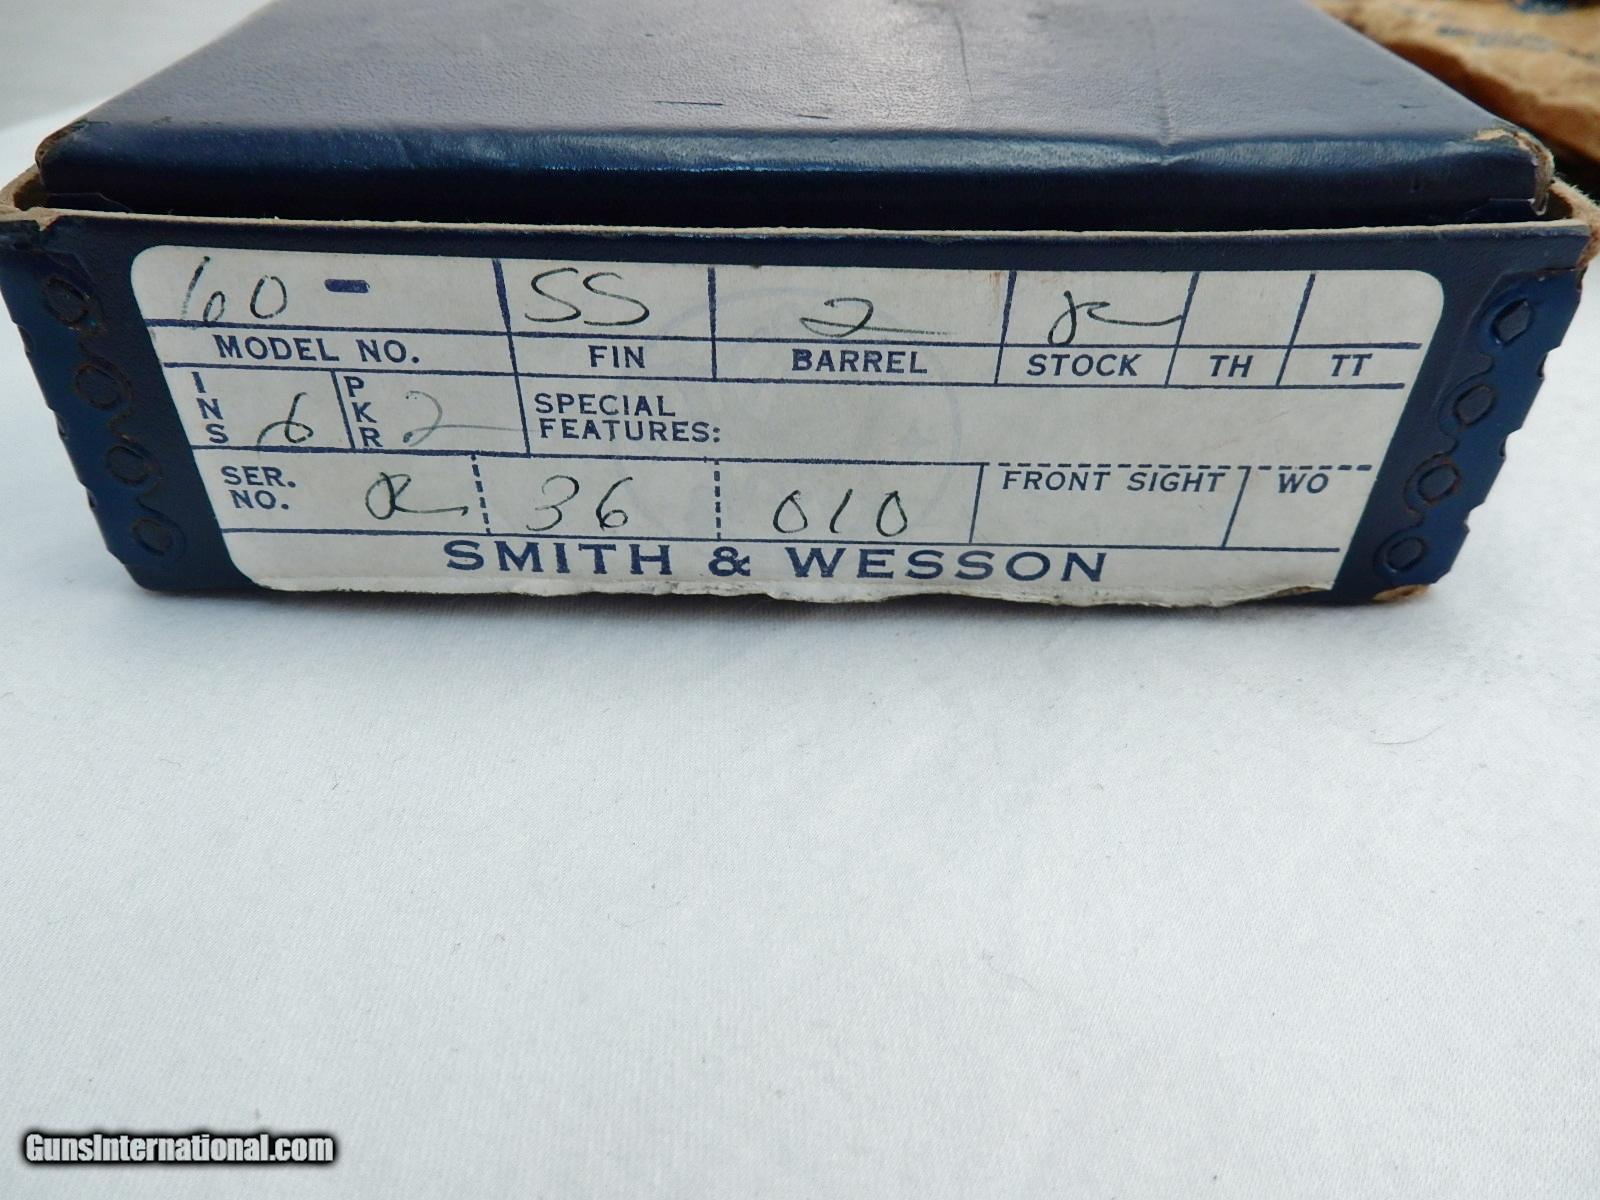 60 - SS 2
MODEL NO. FIN BARREL STOCK TH TT
INS 6 PKR 2 SPECIAL
FEATURES:
SER.
NO. R 36 010 FRONT SIGHT WO
SMITH & WESSON
GunsInternational.com